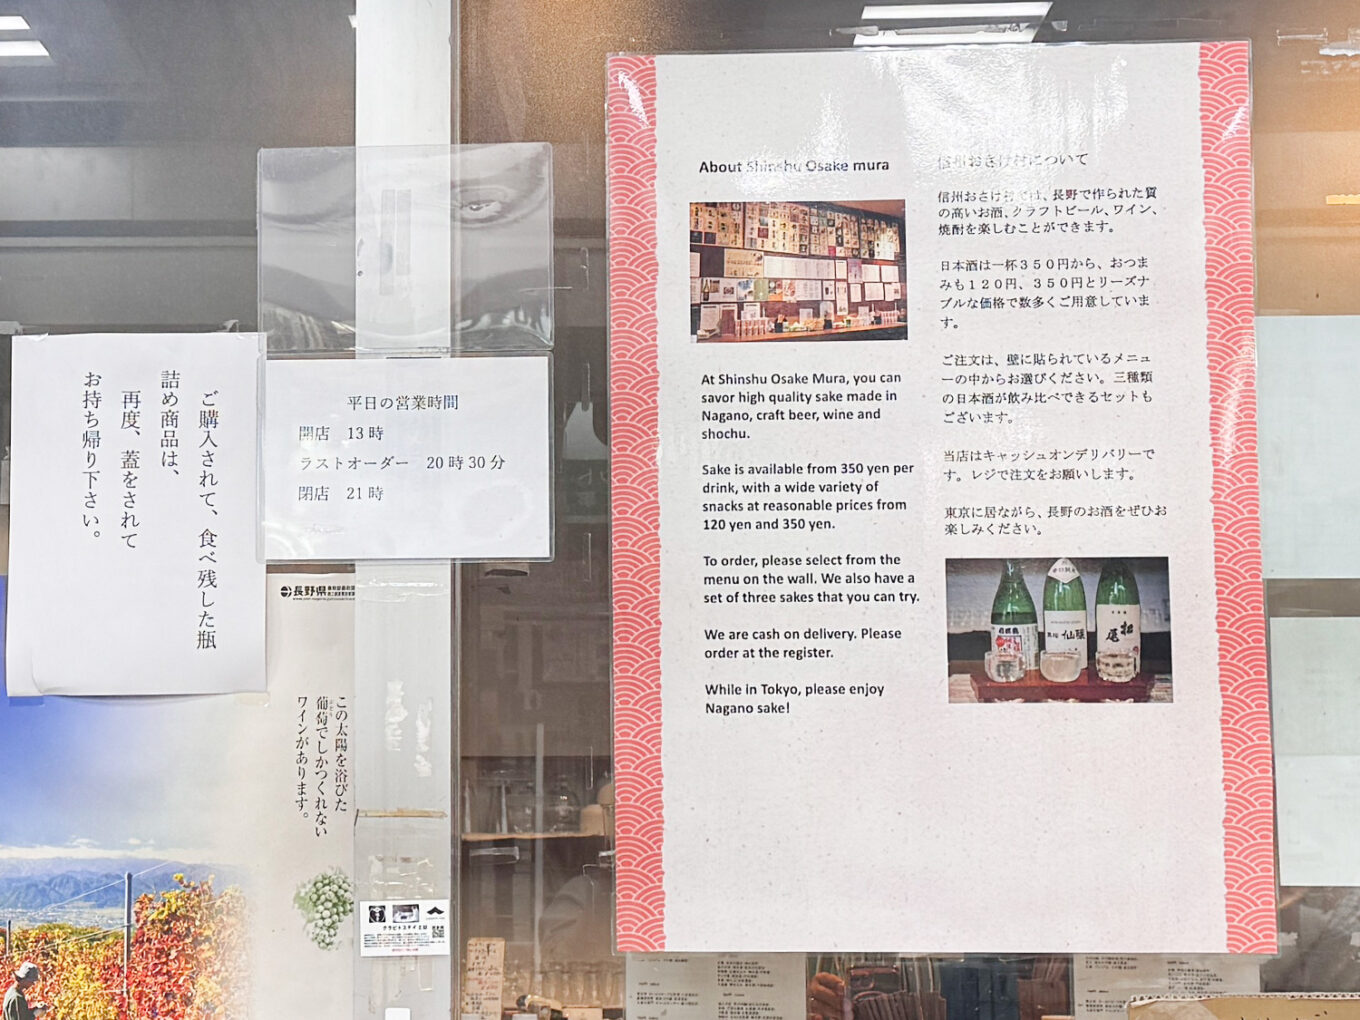 ご購入されて、食べ残した瓶
詰め商品は、
再度、蓋をされて
お持ち帰り下さい。
平日の営業時間
開店 13時
ラストオーダー 20時30分
閉店 21時
長野県
この太陽を浴びた
葡萄でしかつくれない
ワインがあります。
About Shinshu Osake mura
At Shinshu Osake Mura, you can
savor high quality sake made in
Nagano, craft beer, wine and
shochu.
Sake is available from 350 yen per
drink, with a wide variety of
snacks at reasonable prices from
120 yen and 350 yen.
To order, please select from the
menu on the wall. We also have a
set of three sakes that you can try.
We are cash on delivery. Please
order at the register.
While in Tokyo, please enjoy
Nagano sake!
信州おさけ村について
信州おさけ村では、長野で作られた質
の高いお酒、クラフトビール、ワイン、
焼酎を楽しむことができます。
日本酒は一杯350円から、おつま
みも120円、350円とリーズナ
ブルな価格で数多くご用意していま
す。
ご注文は、壁に貼られているメニュ
ーの中からお選びください。三種類
の日本酒が飲み比べできるセットも
ございます。
当店はキャッシュオンデリバリーで
す。レジで注文をお願いします。
東京に居ながら、長野のお酒をぜひお
楽しみください。
仙醸
松尾